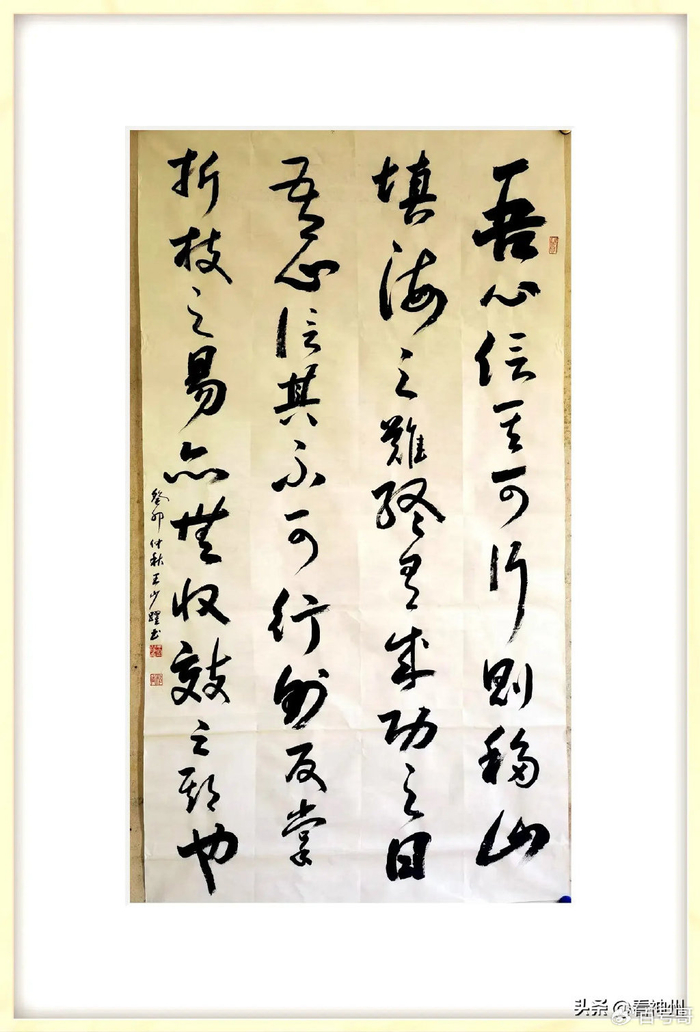 吾心信其可行则移山
填海之難终有成功之日
吾心信其不可行则反掌
折枝之易亦無收效之期也
癸卯仲秋王少躍书
头条@看神州
百号哥